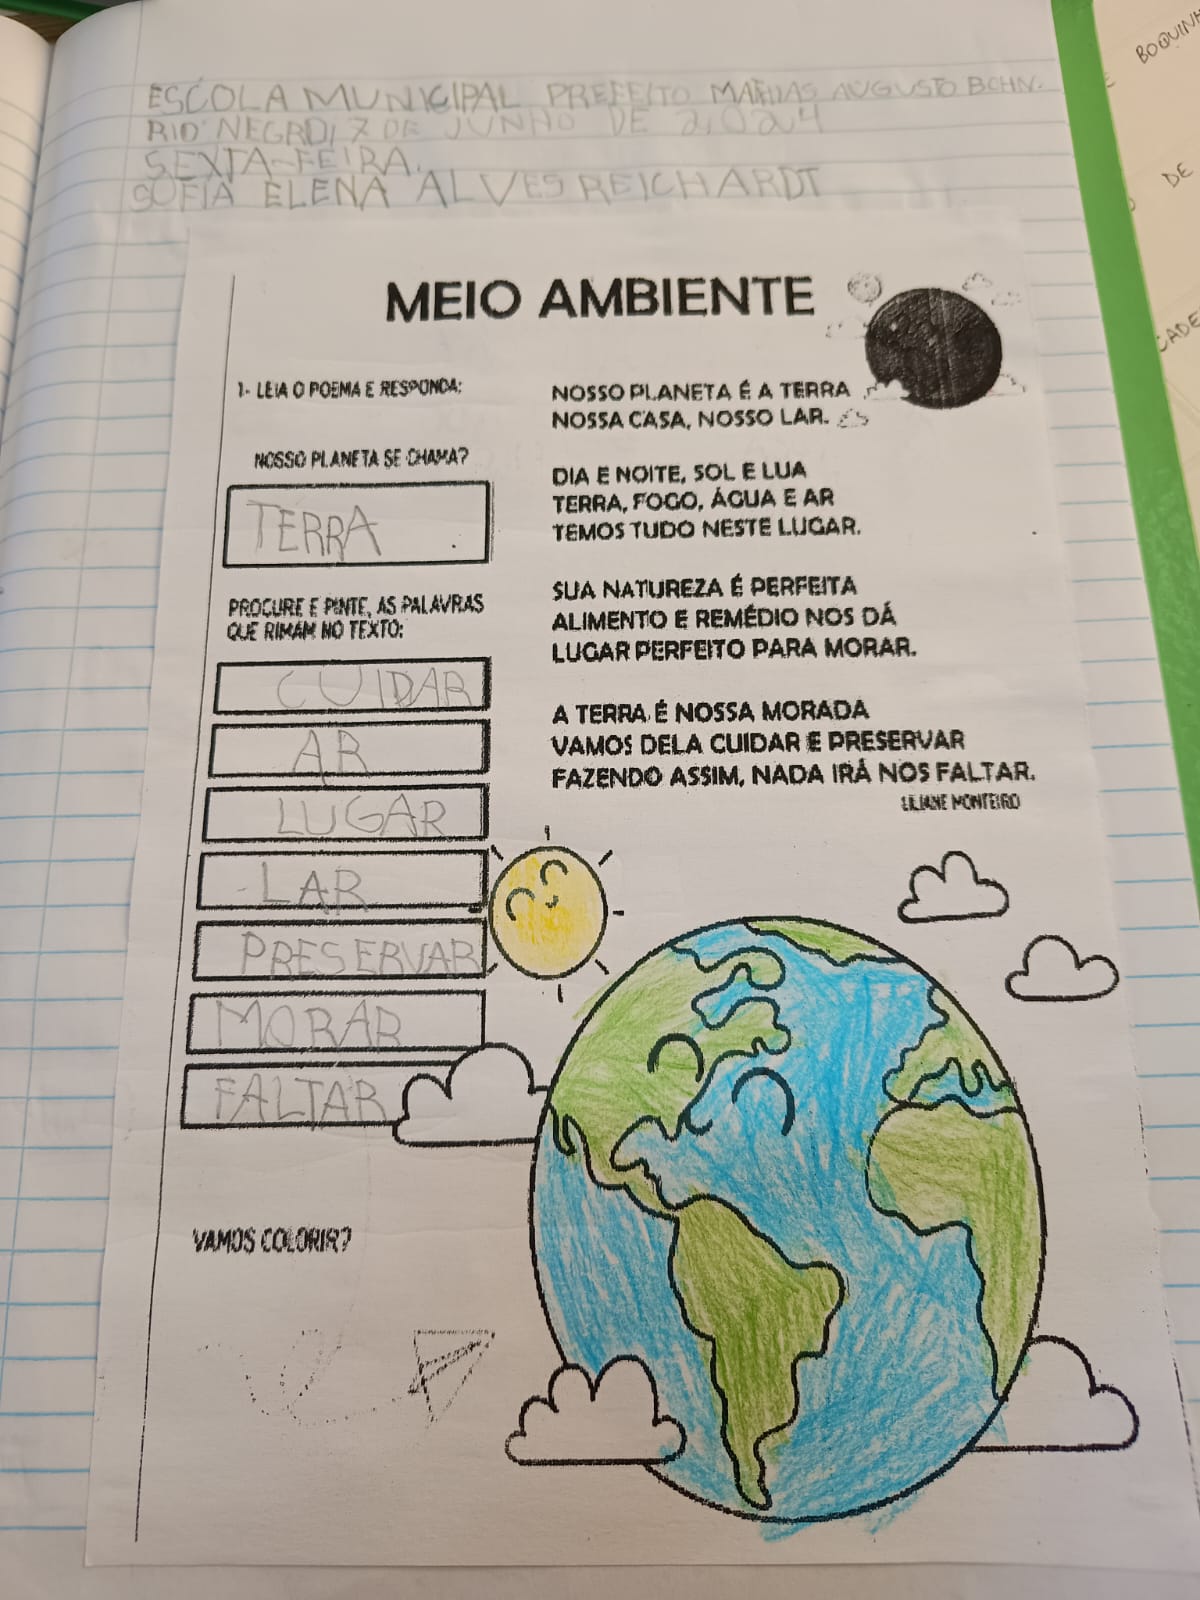 ESCOLA MUNICIPAL PREFEITO MATIAS AUGUSTO BOHN.
RIO NEGRO, 7 DE JUNHO DE 2.024
SEXTA-FEIRA.
SOFIA ELENA ALVES REICHARDT
MEIO AMBIENTE
1- LEIA O POEMA E RESPONDA:
NOSSO PLANETA SE CHAMA?
TERRA
PROCURE E PINTE, AS PALAVRAS
QUE RIMAM NO TEXTO:
CUIDAR
AR
LUGAR
LAR
PRESERVAR
MORAR
FALTAR
VAMOS COLORIR?
NOSSO PLANETA É A TERRA
NOSSA CASA, NOSSO LAR.
DIA E NOITE, SOL E LUA
TERRA, FOGO, ÁGUA E AR
TEMOS TUDO NESTE LUGAR.
SUA NATUREZA É PERFEITA
ALIMENTO E REMÉDIO NOS DÁ
LUGAR PERFEITO PARA MORAR.
A TERRA É NOSSA MORADA
VAMOS DELA CUIDAR E PRESERVAR
FAZENDO ASSIM, NADA IRÁ NOS FALTAR.
LILIANE MONTEIRO
DE